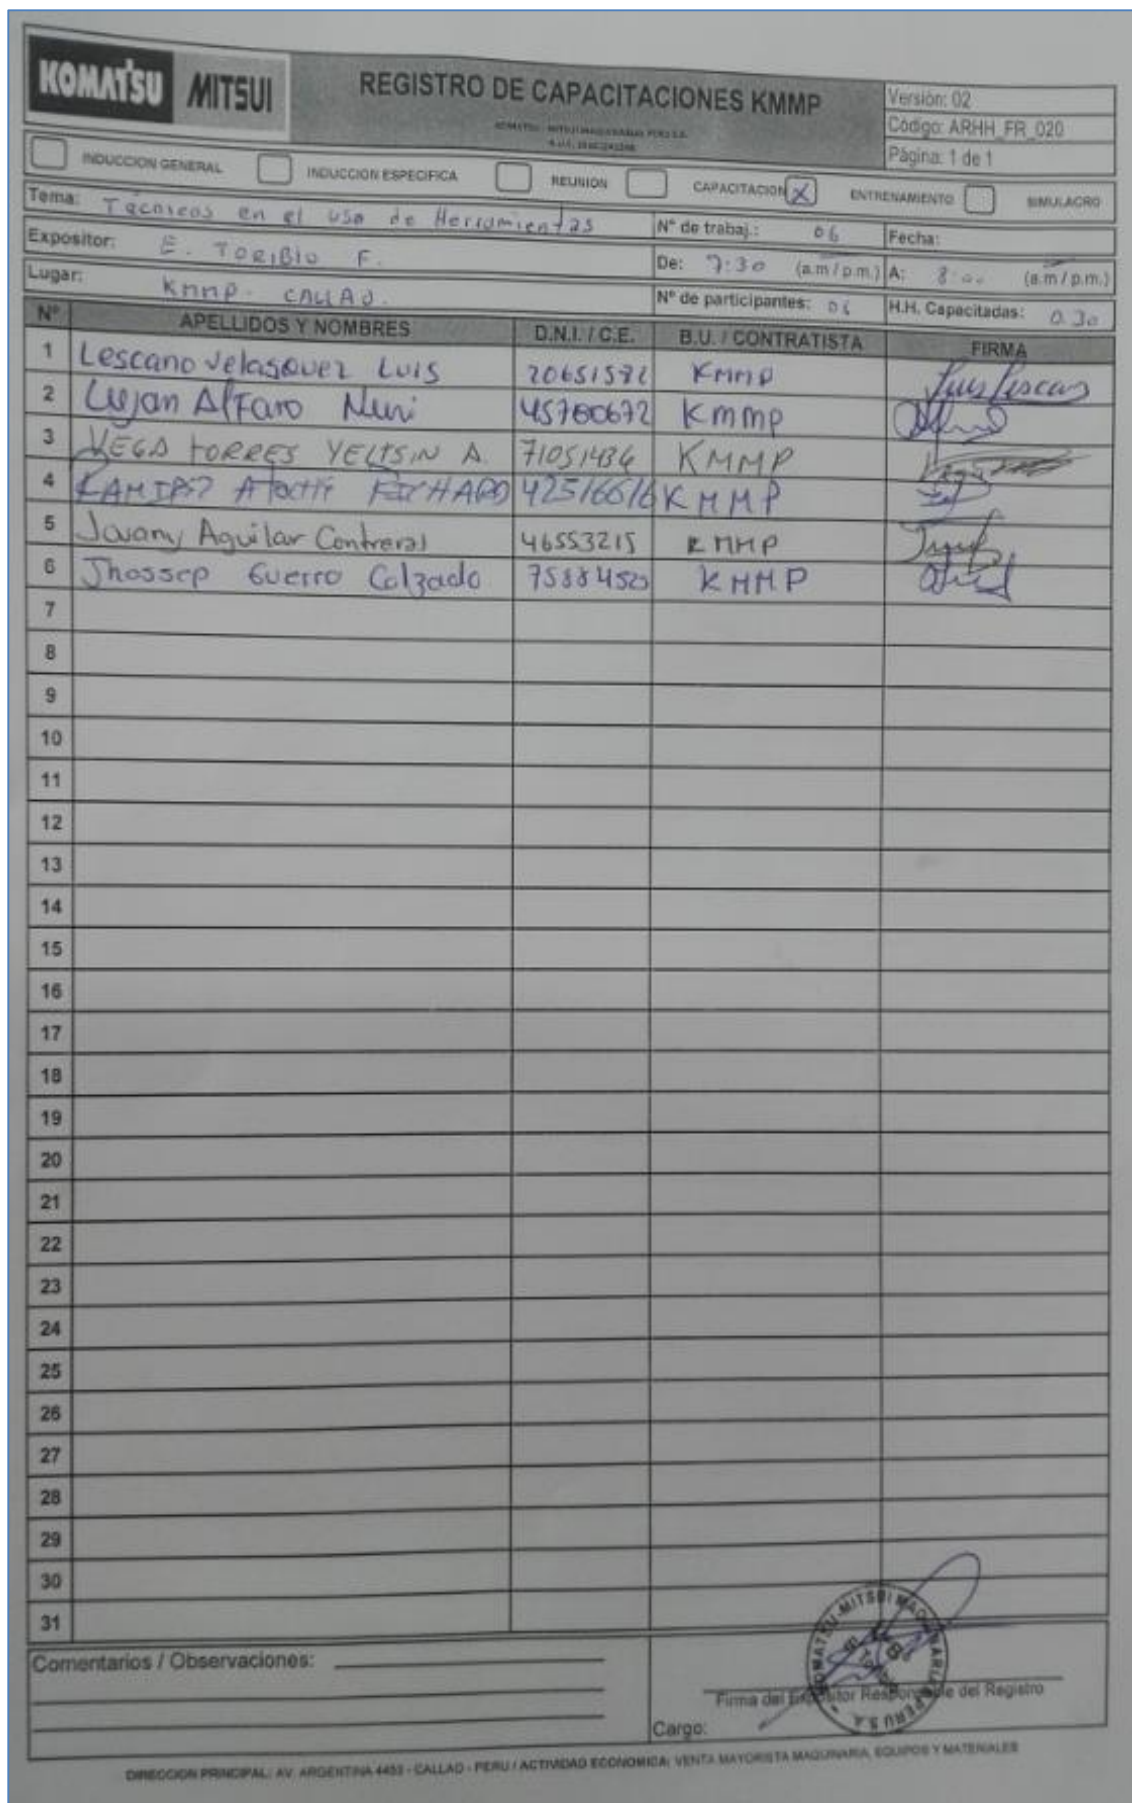 KOMATSU MITSUI
REGISTRO DE CAPACITACIONES KMMP
KOMATSU - MITSUI MAQUINARIAS PERU S.A.
Versión: 02
Código: ARHH_FR_020
Página: 1 de 1
INDUCCION GENERAL INDUCCION ESPECIFICA REUNION CAPACITACION X ENTRENAMIENTO SIMULACRO
Tema: Tecnicos en el uso de Herramientas N° de trabaj.: 06 Fecha:
Expositor: E. TORIBIO F. De: 7:30 (a.m / p.m.) A: 8:00 (a.m / p.m.)
Lugar: KMMP - CALLAO. N° de participantes: 06 H.H. Capacitadas: 0.30
N° APELLIDOS Y NOMBRES D.N.I. / C.E. B.U. / CONTRATISTA FIRMA
1 Lescano Velasquez Luis 20651582 KMMP Luis Lescano
2 Lujan Alfaro 45780672 KMMP
3 VEGA TORRES YELTSIN A. 71051436 KMMP
4 42516616 KMMP
5 Jovany Aguilar Contreras 46553215 KMMP
6 Jhossep Guerro Calzado KMMP
7
8
9
10
11
12
13
14
15
16
17
18
19
20
21
22
23
24
25
26
27
28
29
30
31
Comentarios / Observaciones:
KOMATSU-MITSUI MAQUINARIAS PERU S.A.
Firma del Expositor Responsable del Registro
Cargo:
DIRECCION PRINCIPAL: AV. ARGENTINA 4453 - CALLAO - PERU / ACTIVIDAD ECONOMICA: VENTA MAYORISTA MAQUINARIA, EQUIPOS Y MATERIALES